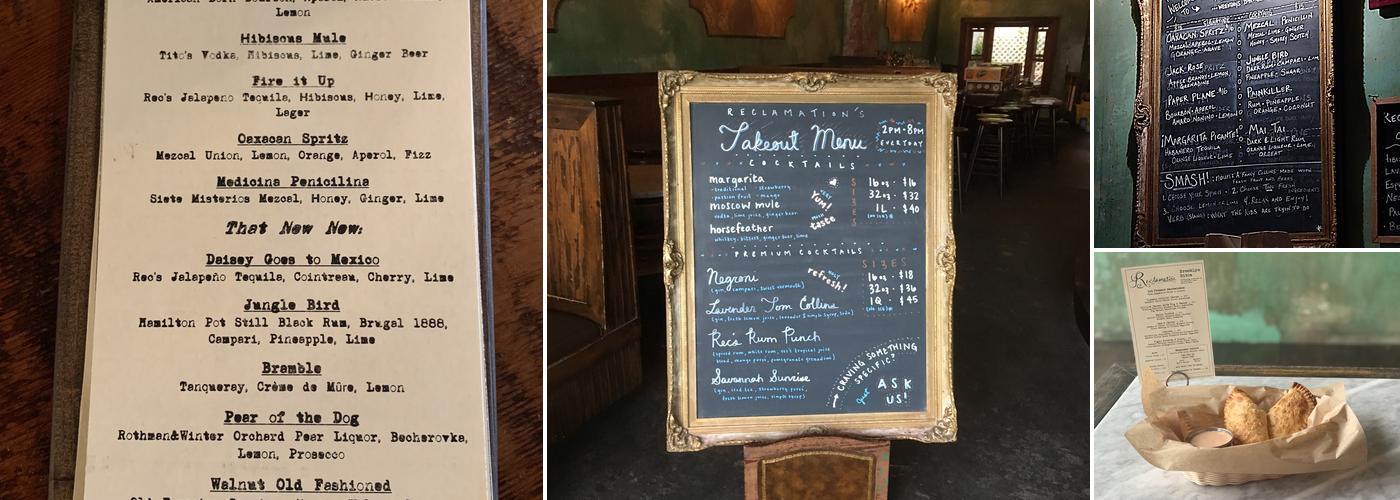 Lemon
Hibiscus Mule
Tito's Vodka, Hibiscus, Lime, Ginger Beer
Fire it Up
Rec's Jalapeno Tequila, Hibiscus, Honey, Lime,
Lager
Oaxacan Spritz
Mezcal Union, Lemon, Orange, Aperol, Fizz
Medicina Penicilina
Siete Misterios Mezcal, Honey, Ginger, Lime
That New New:
Daisey Goes to Mexico
Rec's Jalapeño Tequila, Cointreau, Cherry, Lime
Jungle Bird
Hamilton Pot Still Black Rum, Brugal 1888,
Campari, Pineapple, Lime
Bramble
Tanqueray, Crème de Mûre, Lemon
Pear of the Dog
Rothman&Winter Orchard Pear Liquor, Becherovka,
Lemon, Prosecco
Walnut Old Fashioned
RECLAMATION'S
Takeout Menu
2PM-8PM
EVERYDAY
COCKTAILS
margarita
traditional strawberry
passion fruit mango
moscow mule
vodka, lime juice, ginger beer
horsefeather
whiskey, bitters, ginger beer, lime
Yum!
taste
SIZES
16oz $16
32oz $32
1L $40
PREMIUM COCKTAILS
SIZES
Negroni
(gin, campari, sweet vermouth)
refresh!
16oz $18
32oz $36
1Q $45
Lavender Tom Collins
(gin, fresh lemon juice, lavender simple syrup, soda)
Rec's Rum Punch
(spiced rum, white rum, rec's tropical juice
blend, mango puree, pomegranate grenadine)
Savannah Sunrise
(gin, iced tea, strawberry puree,
fresh lemon juice, simple syrup)
CRAVING SOMETHING
SPECIFIC?
Just ASK
US!
WELCOME
OAXACAN SPRITZ
MEZCAL-APEROL-LEMON
ORANGE-AGAVE
JACK-ROSE
APPLE BRANDY-LEMON
GRENADINE
PAPER PLANE $16
BOURBON, APEROL
AMARO NONINO-LEMON
¡MARGARITA PICANTE!
HABANERO TEQUILA
ORANGE LIQUEUR-LIME
MEZCAL PENICILIN
MEZCAL-LIME-GINGER
HONEY-SMOKEY SCOTCH
JUNGLE BIRD
DARK RUM-CAMPARI-LIME
PINEAPPLE-SUGAR
PAINKILLER
RUM-PINEAPPLE
ORANGE-COCONUT
MAI TAI
DARK & LIGHT RUM
ORANGE LIQUEUR-LIME
ORGEAT
SMASH!: A FANCY COLLINS MADE WITH
FRESH FRUIT AND HERBS
1. CHOOSE YOUR SPIRIT 2. CHOOSE TWO FRESH
INGREDIENTS
3. CHOOSE LEMON OR LIME 4. RELAX AND ENJOY!
VERB (SLANG): WHAT THE KIDS ARE TRYIN TO DO
Reclamation
Brooklyn
Bites